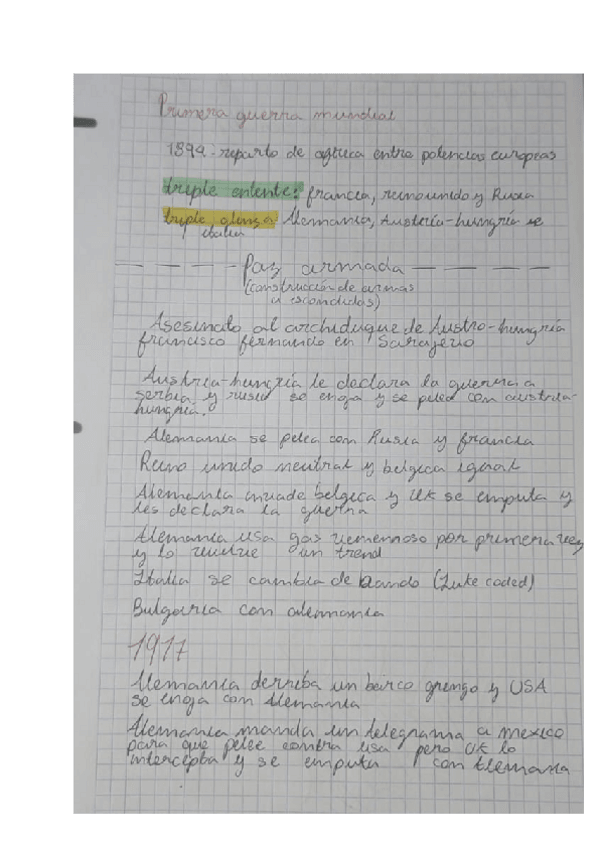 Primera guerra mundial
1894-reparto de africa entre potencias europeas
triple entente: francia, reino unido y Rusia
triple alenza Alemania, Austria-hungria se
italia
Paz armada
(construcción de armas
a escondidas)
Asesinato al archiduque de Austro-hungria
francisco fernando en Sarajevo
Austria-hungria le declara la guerra a
serbia y rusia se enoja y se pelea con austria-
hungria.
Alemania se pelea con Rusia y francia
Reino unido neutral y belgica igual
Alemania invade belgica y UK se emputa y
les declara la guerra
Alemania usa gas venennoso por primera vez
y lo vuelve un trend
Italia se cambia de bando (Luke coded)
Bulgaria con alemania
1917
Alemania derriba un barco gringo y USA
se enoja con Alemania
Alemania manda un telegrama a mexico
para que pelee contra usa pero UK lo
intercepta y se emputa con Alemania